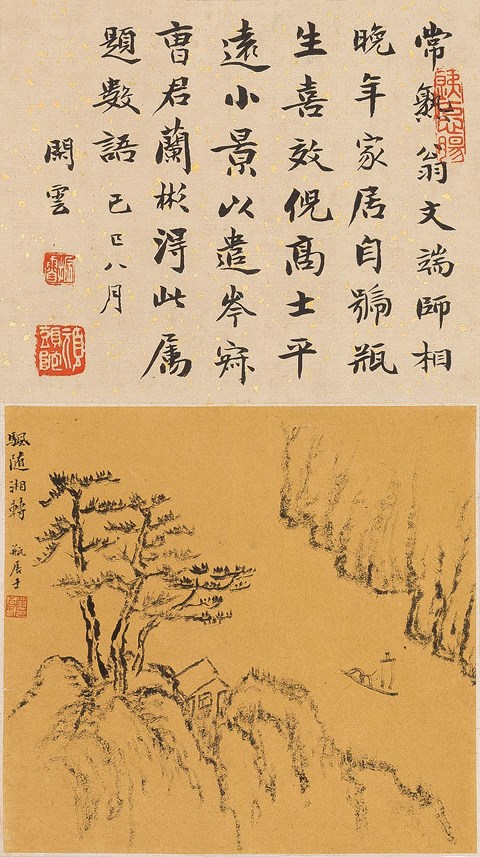 常熟翁文端師相
晚年家居自號瓶
生喜效倪高士平
遠小景以遣岑寂
曹君蘭彬得此属
題數語 己巳八月
閑雲
颿隨湘轉 瓶居士